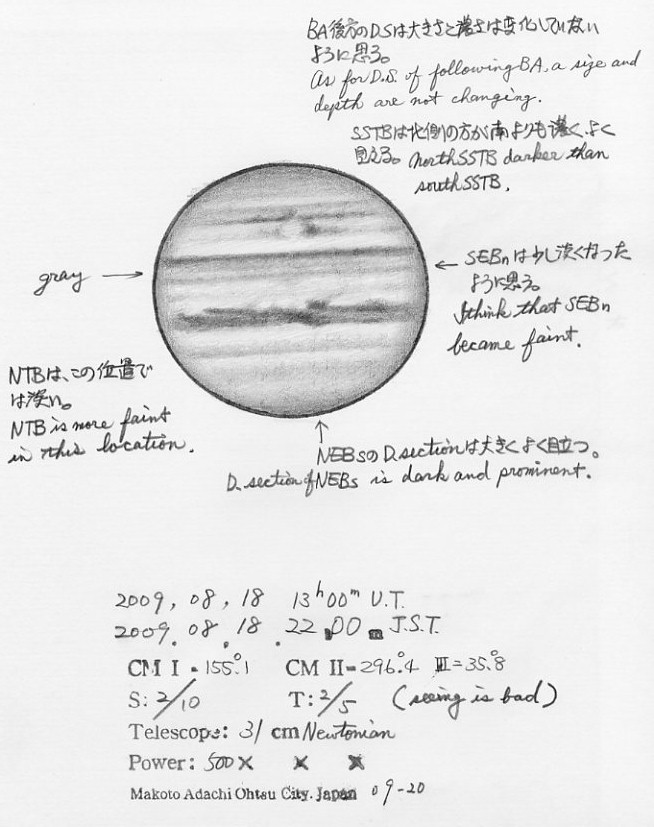 BA後方のD.Sは大きさと濃さは変化していない
ように思う。
As for D.S. of following BA, a size and
depth are not changing.
SSTBは北側の方が南よりも濃く、よく
見える。 North SSTB darker than
south SSTB.
gray
SEBnは少し淡くなった
ように思う。
I think that SEBn
became faint.
NTBは、この位置で
は淡い。
NTB is more faint
in this location.
NEBsのD.sectionは大きくよく目立つ。
D. section of NEBs is dark and prominent.
2009, 08, 18 13h00m U.T.
2009. 08. 18. 22.00 J.S.T.
CM I = 155°.1 CM II = 296°.4 III = 35°.8
S: 2/10 T: 2/5 (seeing is bad)
Telescope: 31 cm Newtonian
Power: 500× × ×
Makoto Adachi Ohtsu City. Japan 09-20